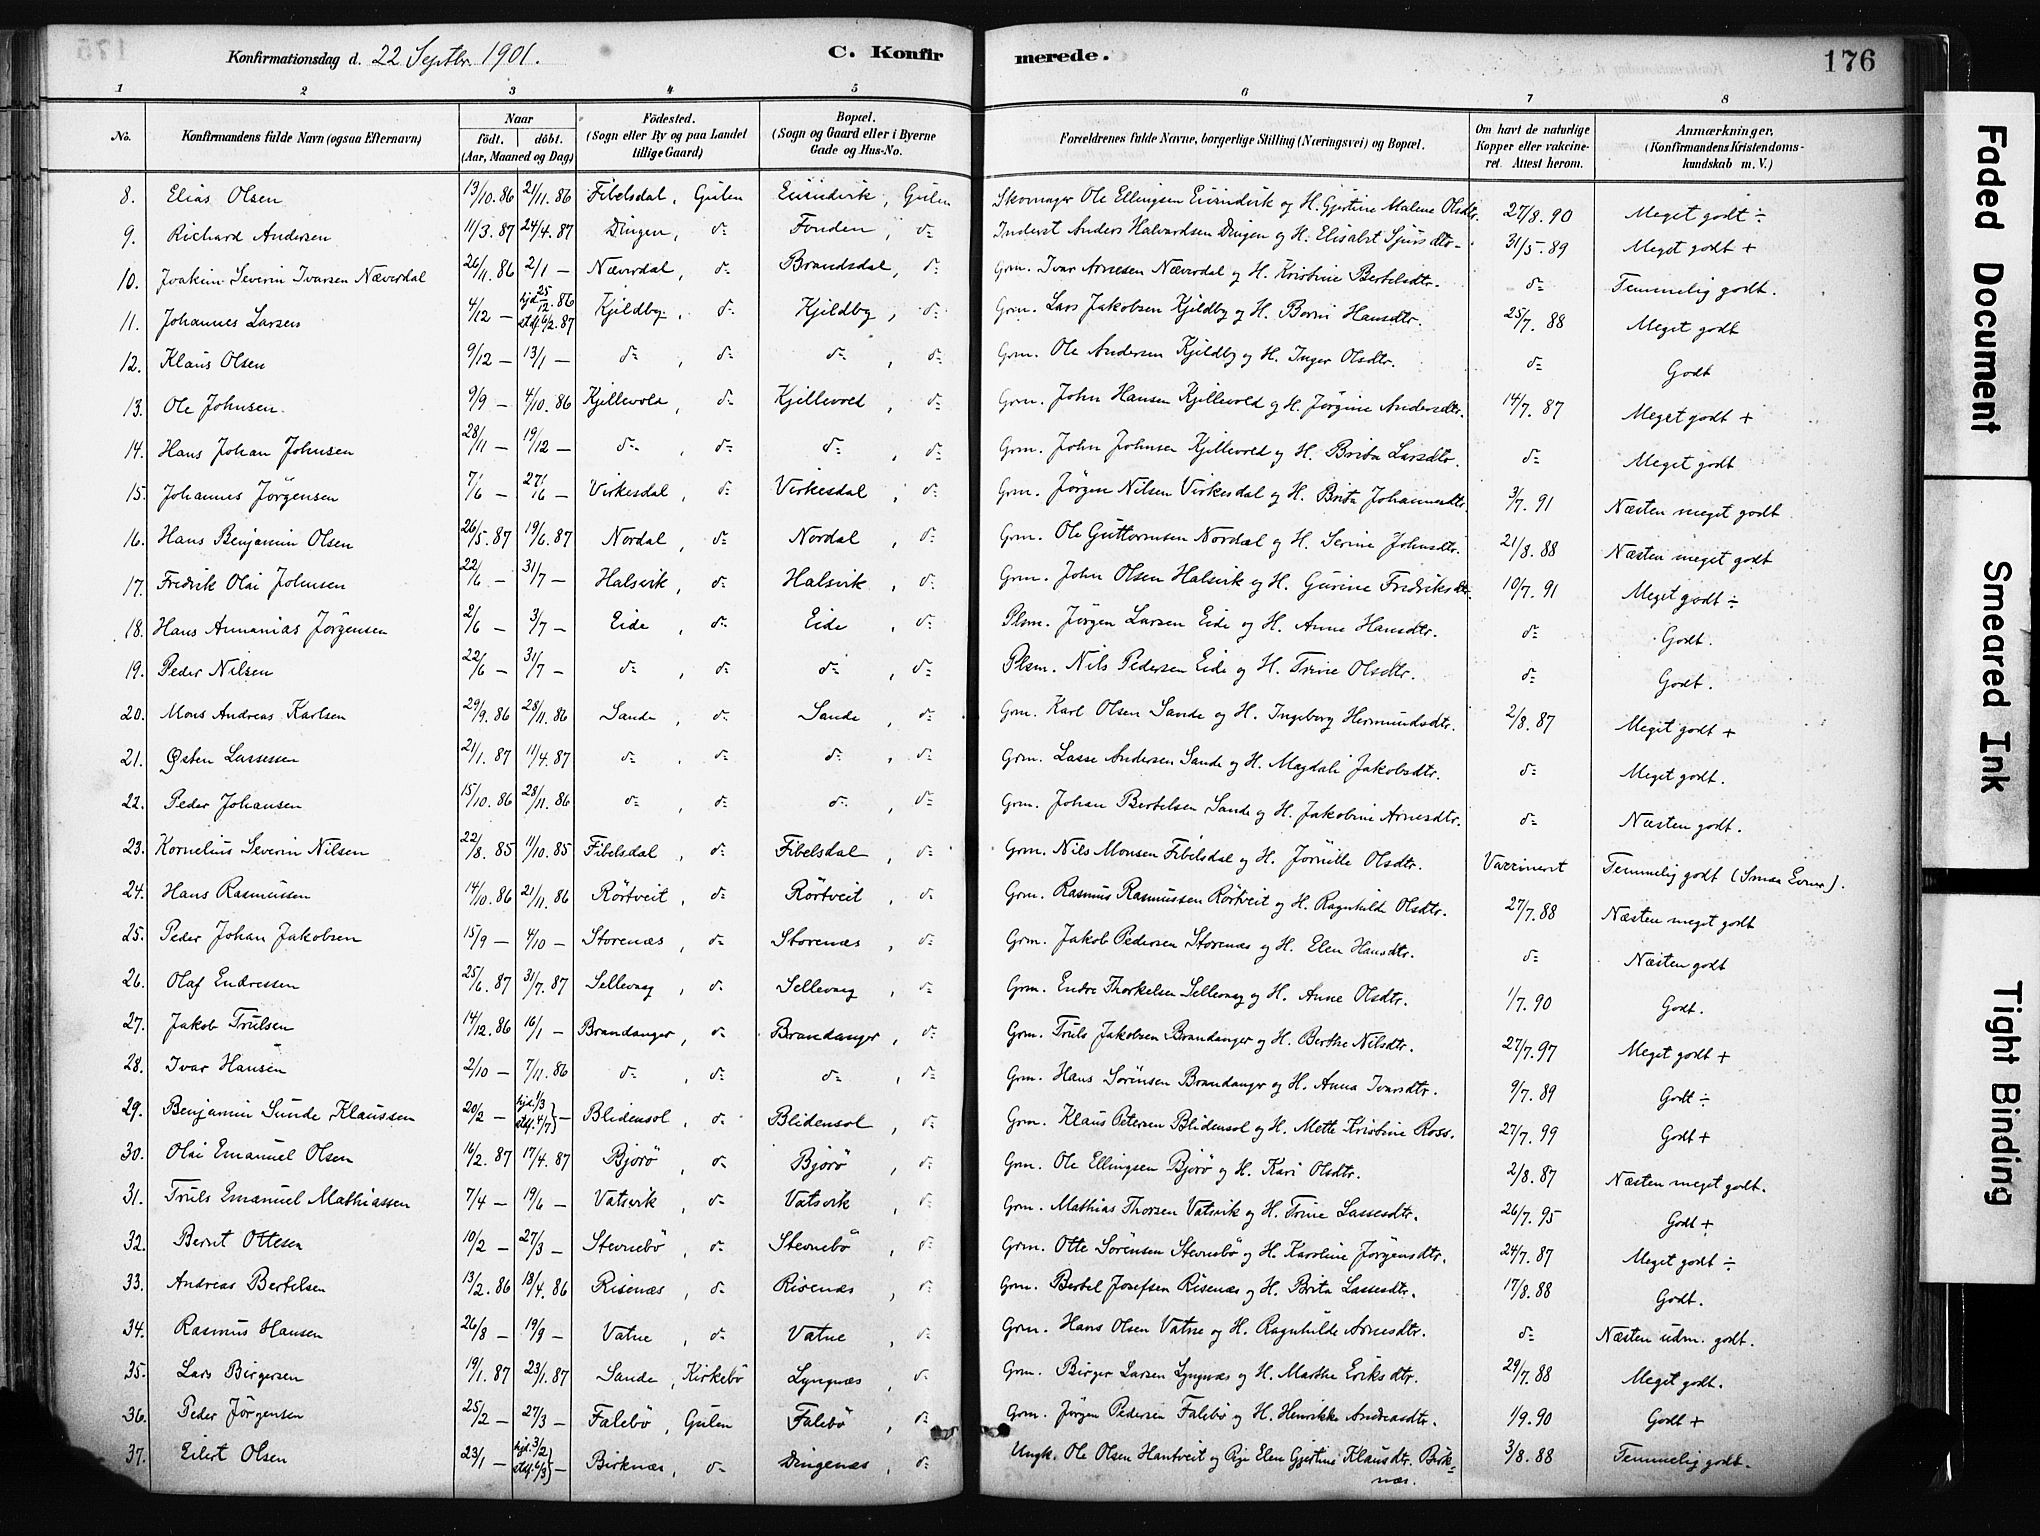 Konfirmationsdag d. 22 Septbr. 1901. C. Konfirmerede. 176
1 2 3 4 5 6 7 8
No. Konfirmandens fulde Navn (ogsaa Efternavn) Naar födt. döbt. (Aar, Maaned og Dag) Födested. (Sogn eller By og paa Landet tillige Gaard) Bopæl. (Sogn og Gaard eller i Byerne Gade og Hus-No. Forældrenes fulde Navne, borgerlige Stilling (Næringsvei) og Bopæl. Om havt de naturlige Kopper eller vakcineret. Attest herom. Anmærkninger, (Konfirmandens Kristendomskundskab m. V.)
8. Elias Olsen 13/10.86 21/11.86 Fibelsdal, Gulen Eivindvik, Gulen Skomager Ole Ellingsen Eivindvik og H. Gjertine Malene Olsdtr. 27/8.90 Meget godt ÷
9. Richard Andersen 11/3.87 24/4.87 Dingen, do Fonden, do Inderst Anders Halvardsen Dingen og H. Elisabet Sjursdtr. 31/5.89 Meget godt +
10. Joakim Severin Ivarsen Næverdal 26/11.86 2/1 — Næverdal, do Brandsdal, do Grm. Ivar Arnesen Næverdal og H. Kristine Bertelsdtr. do Temmelig godt.
11. Johannes Larsen 4/12 — hjd. 25/12.86 stdf. 6/2.87 Kjeldby, do Kjeldby, do Grm. Lars Jakobsen Kjeldby og H. Borni Hansdtr. 25/7.88 Meget godt
12. Klaus Olsen 9/12 — 13/1 — do, do do, do Grm. Ole Andersen Kjeldby og H. Inger Olsdtr. do Godt
13. Ole Johnsen. 9/9 — 4/10.86 Kjellevold, do Kjellevold, do Grm. John Hansen Kjellevold og H. Jørgine Andersdtr. 14/7.87 Meget godt +
14. Hans Johan Johnsen 28/11 — 19/12 — do, do do, do Grm. John Johnsen Kjellevold og H. Brita Larsdtr. do Meget godt
15. Johannes Jörgensen 7/6 — 27/6 — Virkesdal, do Virkesdal, do Grm. Jørgen Nilsen Virkesdal og H. Brita Johannesdtr. 3/7.91 Næsten meget godt
16. Hans Benjamin Olsen 26/5.87 19/6.87 Nordal, do Nordal, do Grm. Ole Guttormsen Nordal og H. Serine Johnsdtr. 21/8.88 Næsten meget godt
17. Fredrik Olai Johnsen 22/6 — 31/7 — Halsvik, do Halsvik, do Grm. John Olsen Halsvik og H. Gurine Fredriksdtr. 10/7.91 Meget godt ÷
18. Hans Annanias Jörgensen 2/6 — 3/7 — Eide, do Eide, do Plsm. Jørgen Larsen Eide og H. Anne Hansdtr. do Godt.
19. Peder Nilsen 22/6 — 31/7 — do, do do, do Plsm. Nils Pedersen Eide og H. Trine Olsdtr. do Godt.
20. Mons Andreas Karlsen 29/9.86 28/11.86 Sande, do Sande, do Grm. Karl Olsen Sande og H. Ingeborg Hermundsdtr. 2/8.87 Meget godt +
21. Østen Lassesen 21/1.87 11/4.87 do, do do, do Grm. Lasse Andersen Sande og H. Magdali Jakobsdtr. do Meget godt.
22. Peder Johansen 15/10.86 28/11.86 do, do do, do Grm. Johan Bertelsen Sande og H. Jakobine Arnesdtr. do Næsten godt.
23. Kornelius Severin Nilsen 22/8.85 11/10.85 Fibelsdal, do Fibelsdal, do Grm. Nils Monsen Fibelsdal og H. Jørnille Olsdtr. Vaccineret Temmelig godt (Smaa Evner).
24. Hans Rasmussen 14/10.86 21/11.86 Rörtveit, do Rörtveit, do Grm. Rasmus Rasmussen Rörtveit og H. Ragnhilde Olsdtr. 27/7.88 Næsten meget godt
25. Peder Johan Jakobsen 15/9 — 4/10 — Storenæs, do Storenæs, do Grm. Jakob Pedersen Storenæs og H. Elen Hansdtr. do Næsten godt
26. Olaf Endresen 25/6.87 31/7.87 Sellevaag, do Sellevaag, do Grm. Endre Thorkelsen Sellevaag og H. Anne Olsdtr. 1/7.90 Godt.
27. Jakob Trulsen 14/12.86 16/1 — Brandanger, do Brandanger, do Grm. Truls Jakobsen Brandanger og H. Berthe Nilsdtr. 27/7.97 Meget godt +
28. Ivar Hansen 2/10 — 7/11.86 do, do do, do Grm. Hans Sörensen Brandanger og H. Anna Ivarsdtr. 9/7.89 Godt ÷
29. Benjamin Sunde Klaussen 20/2 — hjd. 1/3 stdf. 4/7 } — Blidensol, do Blidensol, do Grm. Klaus Petersen Blidensol og H. Mette Kristine Ross. 27/7.99 Godt +
30. Olai Emanuel Olsen 16/2.87 17/4.87 Bjorö, do Bjorö, do Grm. Ole Ellingsen Bjorö og H. Kari Olsdtr. 2/8.87 Næsten meget godt.
31. Truls Emanuel Mathiassen 7/4 — 19/6 — Vatsvik, do Vatsvik, do Grm. Mathias Thorsen Vatsvik og H. Trine Lassesdtr. 26/7.95 Godt +
32. Bernt Ottesen 10/2 — 27/3 — Stevnebö, do Stevnebö, do Grm. Otte Sörensen Stevnebö og H. Karoline Jørgensdtr. 24/7.87 Meget godt ÷
33. Andreas Bertelsen 13/2.86 18/4.86 Risenæs, do Risenæs, do Grm. Bertel Josefsen Risenæs og H. Brita Lassesdtr. 17/8.88 Godt.
34. Rasmus Hansen 26/8 — 19/9 — Vatne, do Vatne, do Grm. Hans Olsen Vatne og H. Ragnhilde Arnesdtr. do Næsten udm. godt.
35. Lars Birgersen 19/1.87 23/1.87 Sande, Kirkebö Lyngnæs, do Grm. Birger Larsen Lyngnæs og H. Marthe Eriksdtr. 29/7.88 Meget godt.
36. Peder Jörgensen 25/2 — 27/3 — Falebö, Gulen Falebö, do Grm. Jörgen Pedersen Falebö og H. Henrikke Andreasdtr. 1/9.90 Godt +
37. Eilert Olsen 23/1 — hjd. 3/2 stdf. 6/3 } — Birknæs, do Dingenæs, do Ungk. Ole Olsen Hantveit og Pige Elen Gjertine Klausdtr. Birknæs. 3/8.88 Temmelig godt.
Faded Document
Smeared Ink
Tight Binding